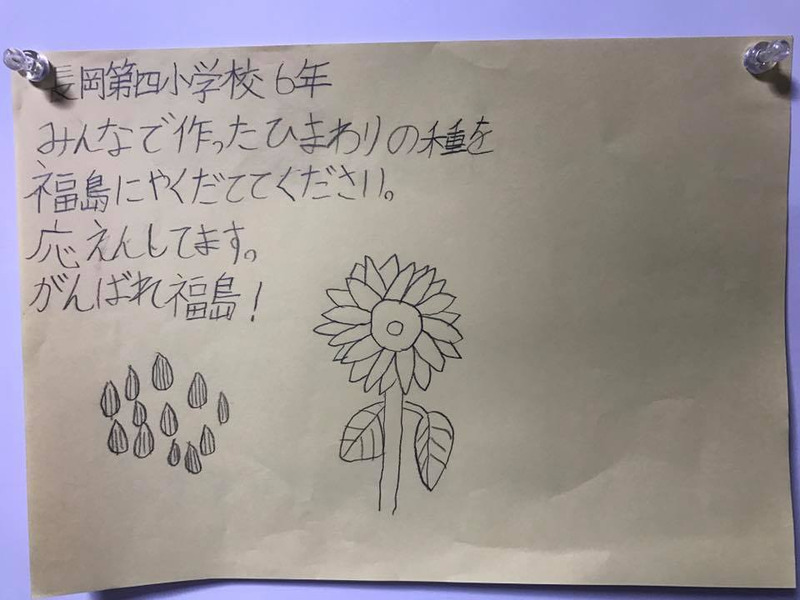 長岡第四小学校6年
みんなで作ったひまわりの種を
福島にやくだててください。
応えんしてます。
がんばれ福島!